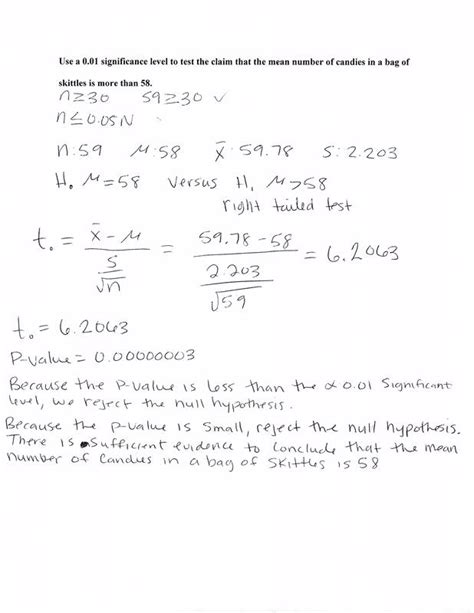 Use a 0.01 significance level to test the claim that the mean number of candies in a bag of
skittles is more than 58.
n≥30 59≥30 ✓
n≤0.05N
n:59 μ:58 x̄:59.78 S:2.203
H₀ μ=58 versus H₁ μ>58
right tailed test
t₀ = (x̄ - μ) / (s/√n) = (59.78 - 58) / (2.203/√59) = 6.2063
t₀ = 6.2063
P-value = 0.00000003
Because the P-value is less than the α 0.01 Significant
level, we reject the null hypothesis.
Because the p-value is small, reject the null hypothesis.
There is sufficient evidence to conclude that the mean
number of candies in a bag of skittles is 58